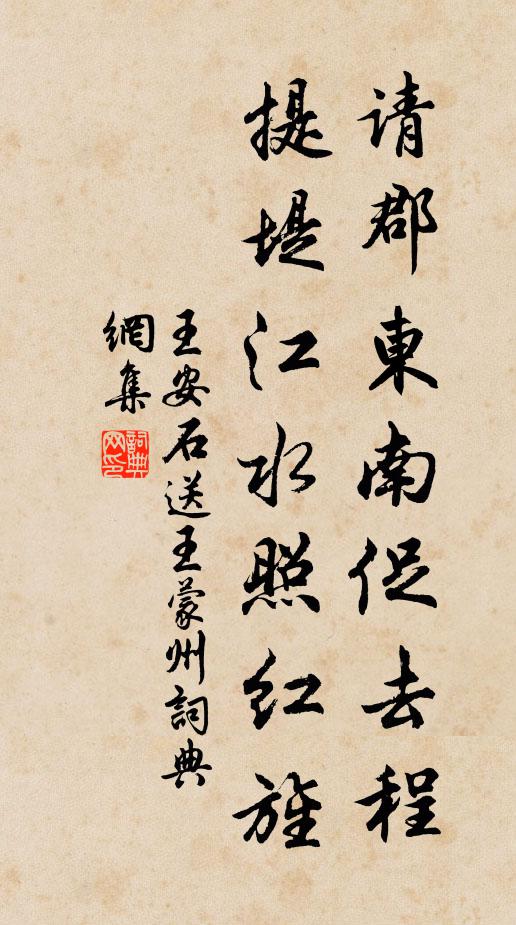 请郡東南促去程
提堤江水照红旌
王安石送王蒙州詞典
網集
詞典網印